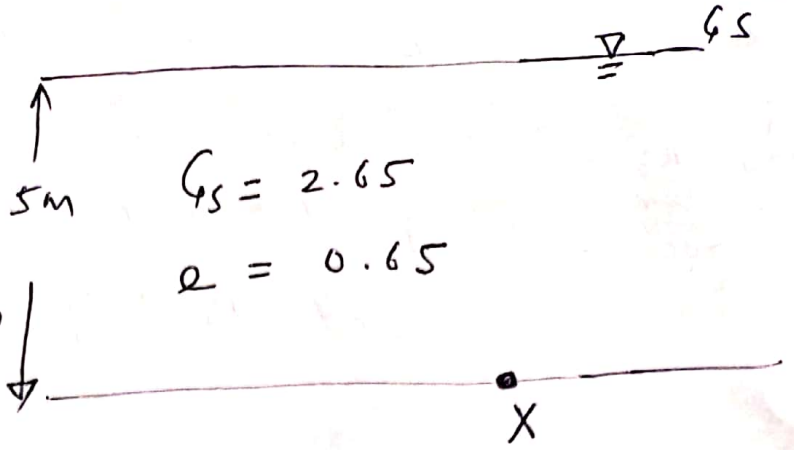 GS
5m
Gs = 2.65
e = 0.65
X